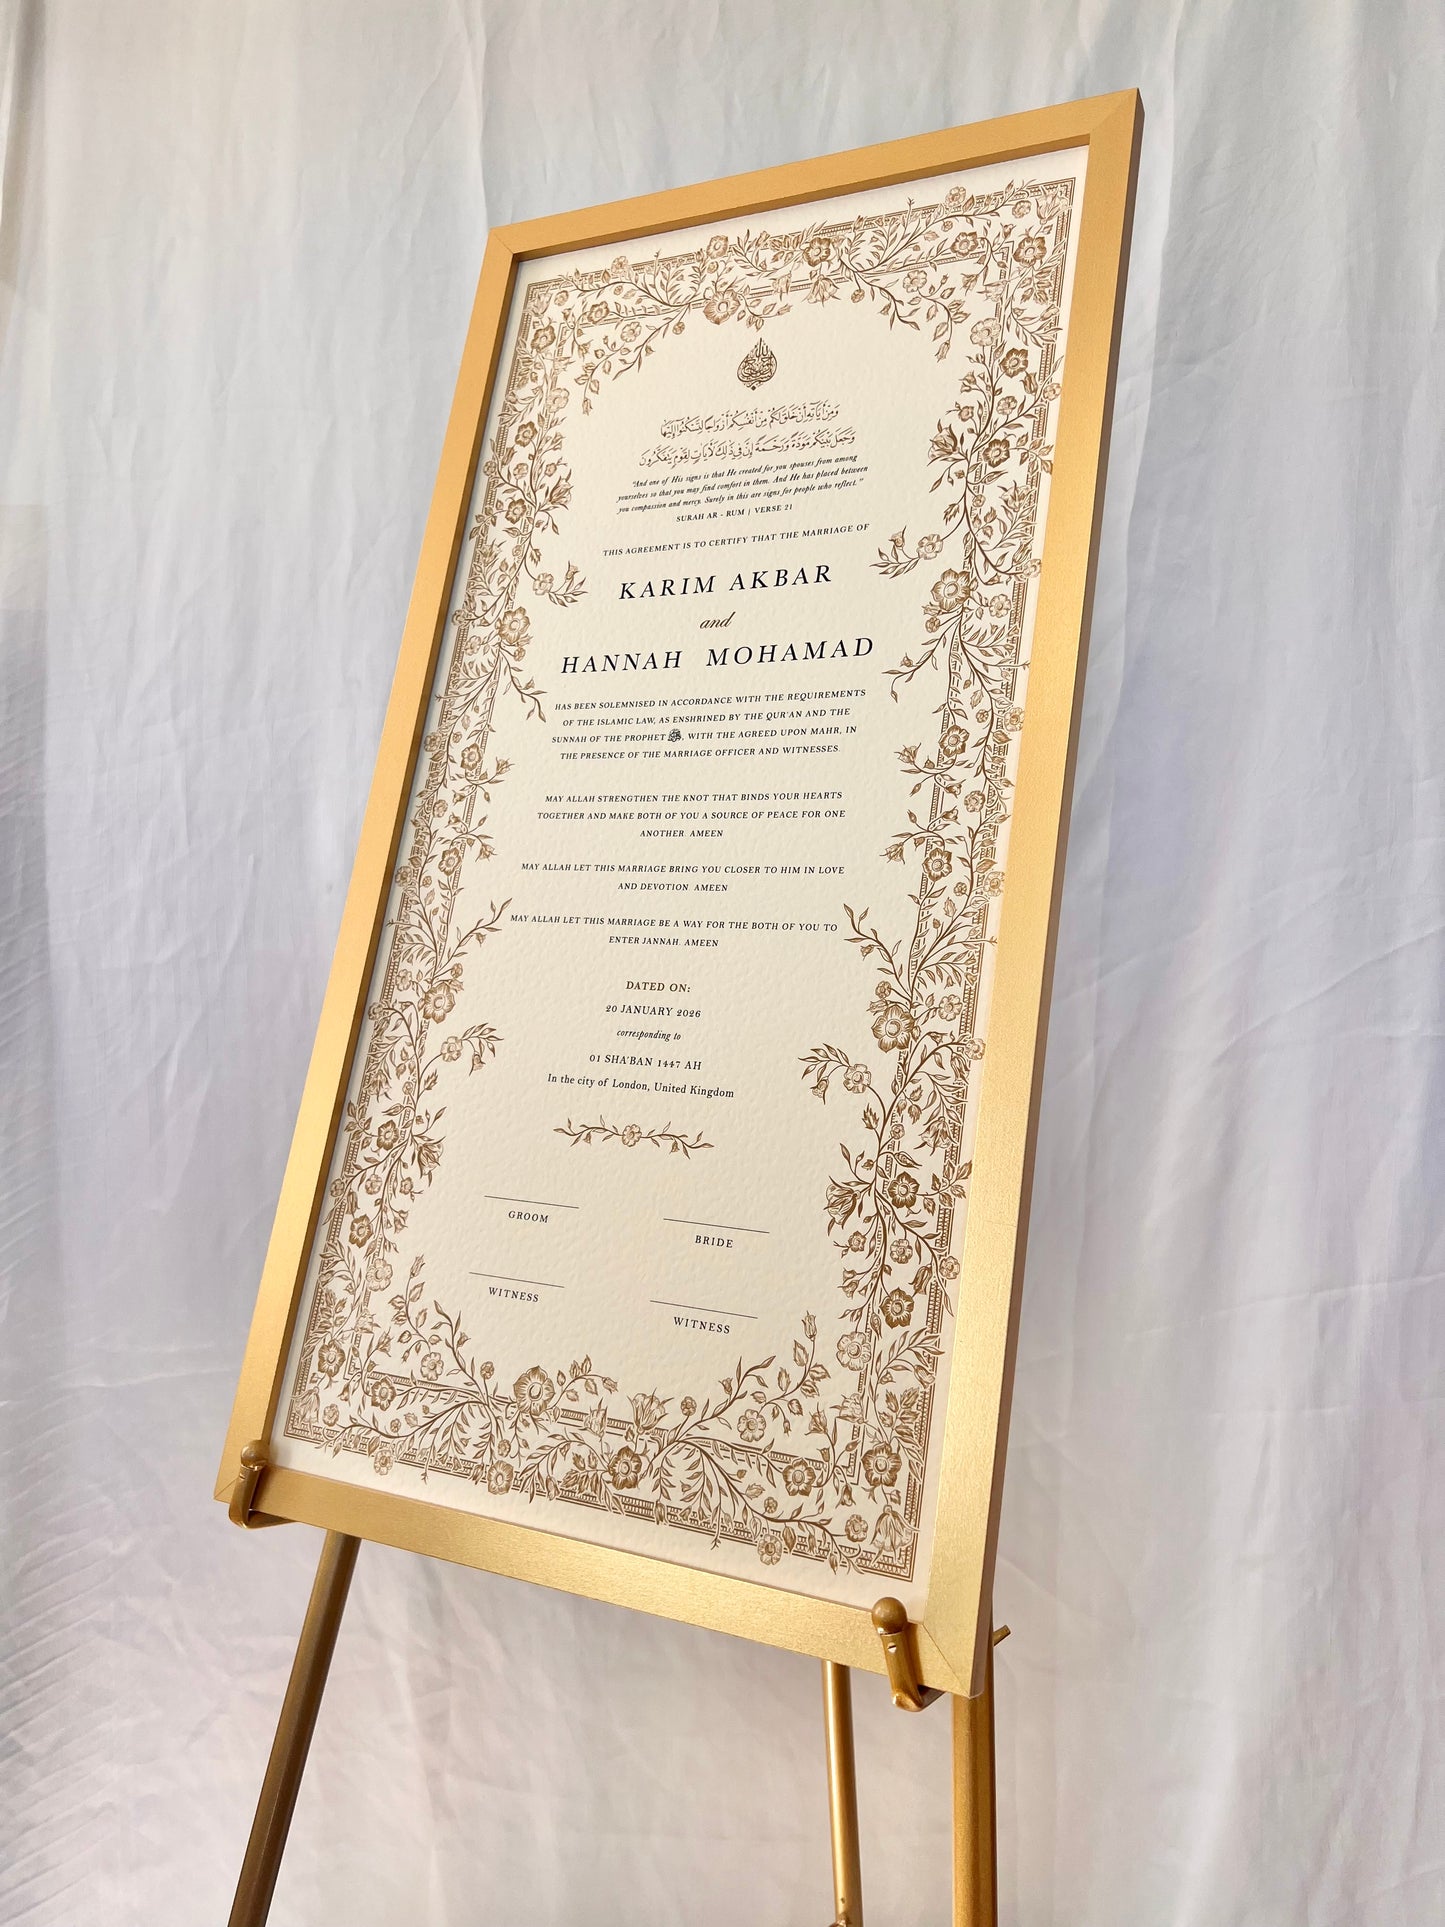 وَمِنْ آيَاتِهِ أَنْ خَلَقَ لَكُم مِّنْ أَنفُسِكُمْ أَزْوَاجًا لِّتَسْكُنُوا إِلَيْهَا
وَجَعَلَ بَيْنَكُم مَّوَدَّةً وَرَحْمَةً إِنَّ فِي ذَٰلِكَ لَآيَاتٍ لِّقَوْمٍ يَتَفَكَّرُونَ
"And one of His signs is that He created for you spouses from among
yourselves so that you may find comfort in them. And He has placed between
you compassion and mercy. Surely in this are signs for people who reflect."
SURAH AR - RUM | VERSE 21
THIS AGREEMENT IS TO CERTIFY THAT THE MARRIAGE OF
KARIM AKBAR
and
HANNAH MOHAMAD
HAS BEEN SOLEMNISED IN ACCORDANCE WITH THE REQUIREMENTS
OF THE ISLAMIC LAW, AS ENSHRINED BY THE QUR'AN AND THE
SUNNAH OF THE PROPHET ﷺ, WITH THE AGREED UPON MAHR, IN
THE PRESENCE OF THE MARRIAGE OFFICER AND WITNESSES.
MAY ALLAH STRENGTHEN THE KNOT THAT BINDS YOUR HEARTS
TOGETHER AND MAKE BOTH OF YOU A SOURCE OF PEACE FOR ONE
ANOTHER. AMEEN
MAY ALLAH LET THIS MARRIAGE BRING YOU CLOSER TO HIM IN LOVE
AND DEVOTION. AMEEN
MAY ALLAH LET THIS MARRIAGE BE A WAY FOR THE BOTH OF YOU TO
ENTER JANNAH. AMEEN
DATED ON:
20 JANUARY 2026
corresponding to
01 SHA'BAN 1447 AH
In the city of London, United Kingdom
GROOM
BRIDE
WITNESS
WITNESS